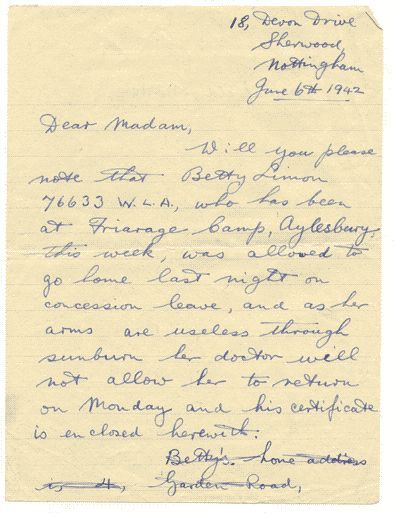 18, Devon Drive
Sherwood,
Nottingham
June 6th 1942
Dear Madam,
Will you please
note that Betty Limon
76633 W.L.A., who has been
at Friarage Camp, Aylesbury,
this week, was allowed to
go home last night on
concession leave, and as her
arms are useless through
sunburn her doctor will
not allow her to return
on Monday and his certificate
is enclosed herewith.
Betty's home address
is 4, Garden Road,